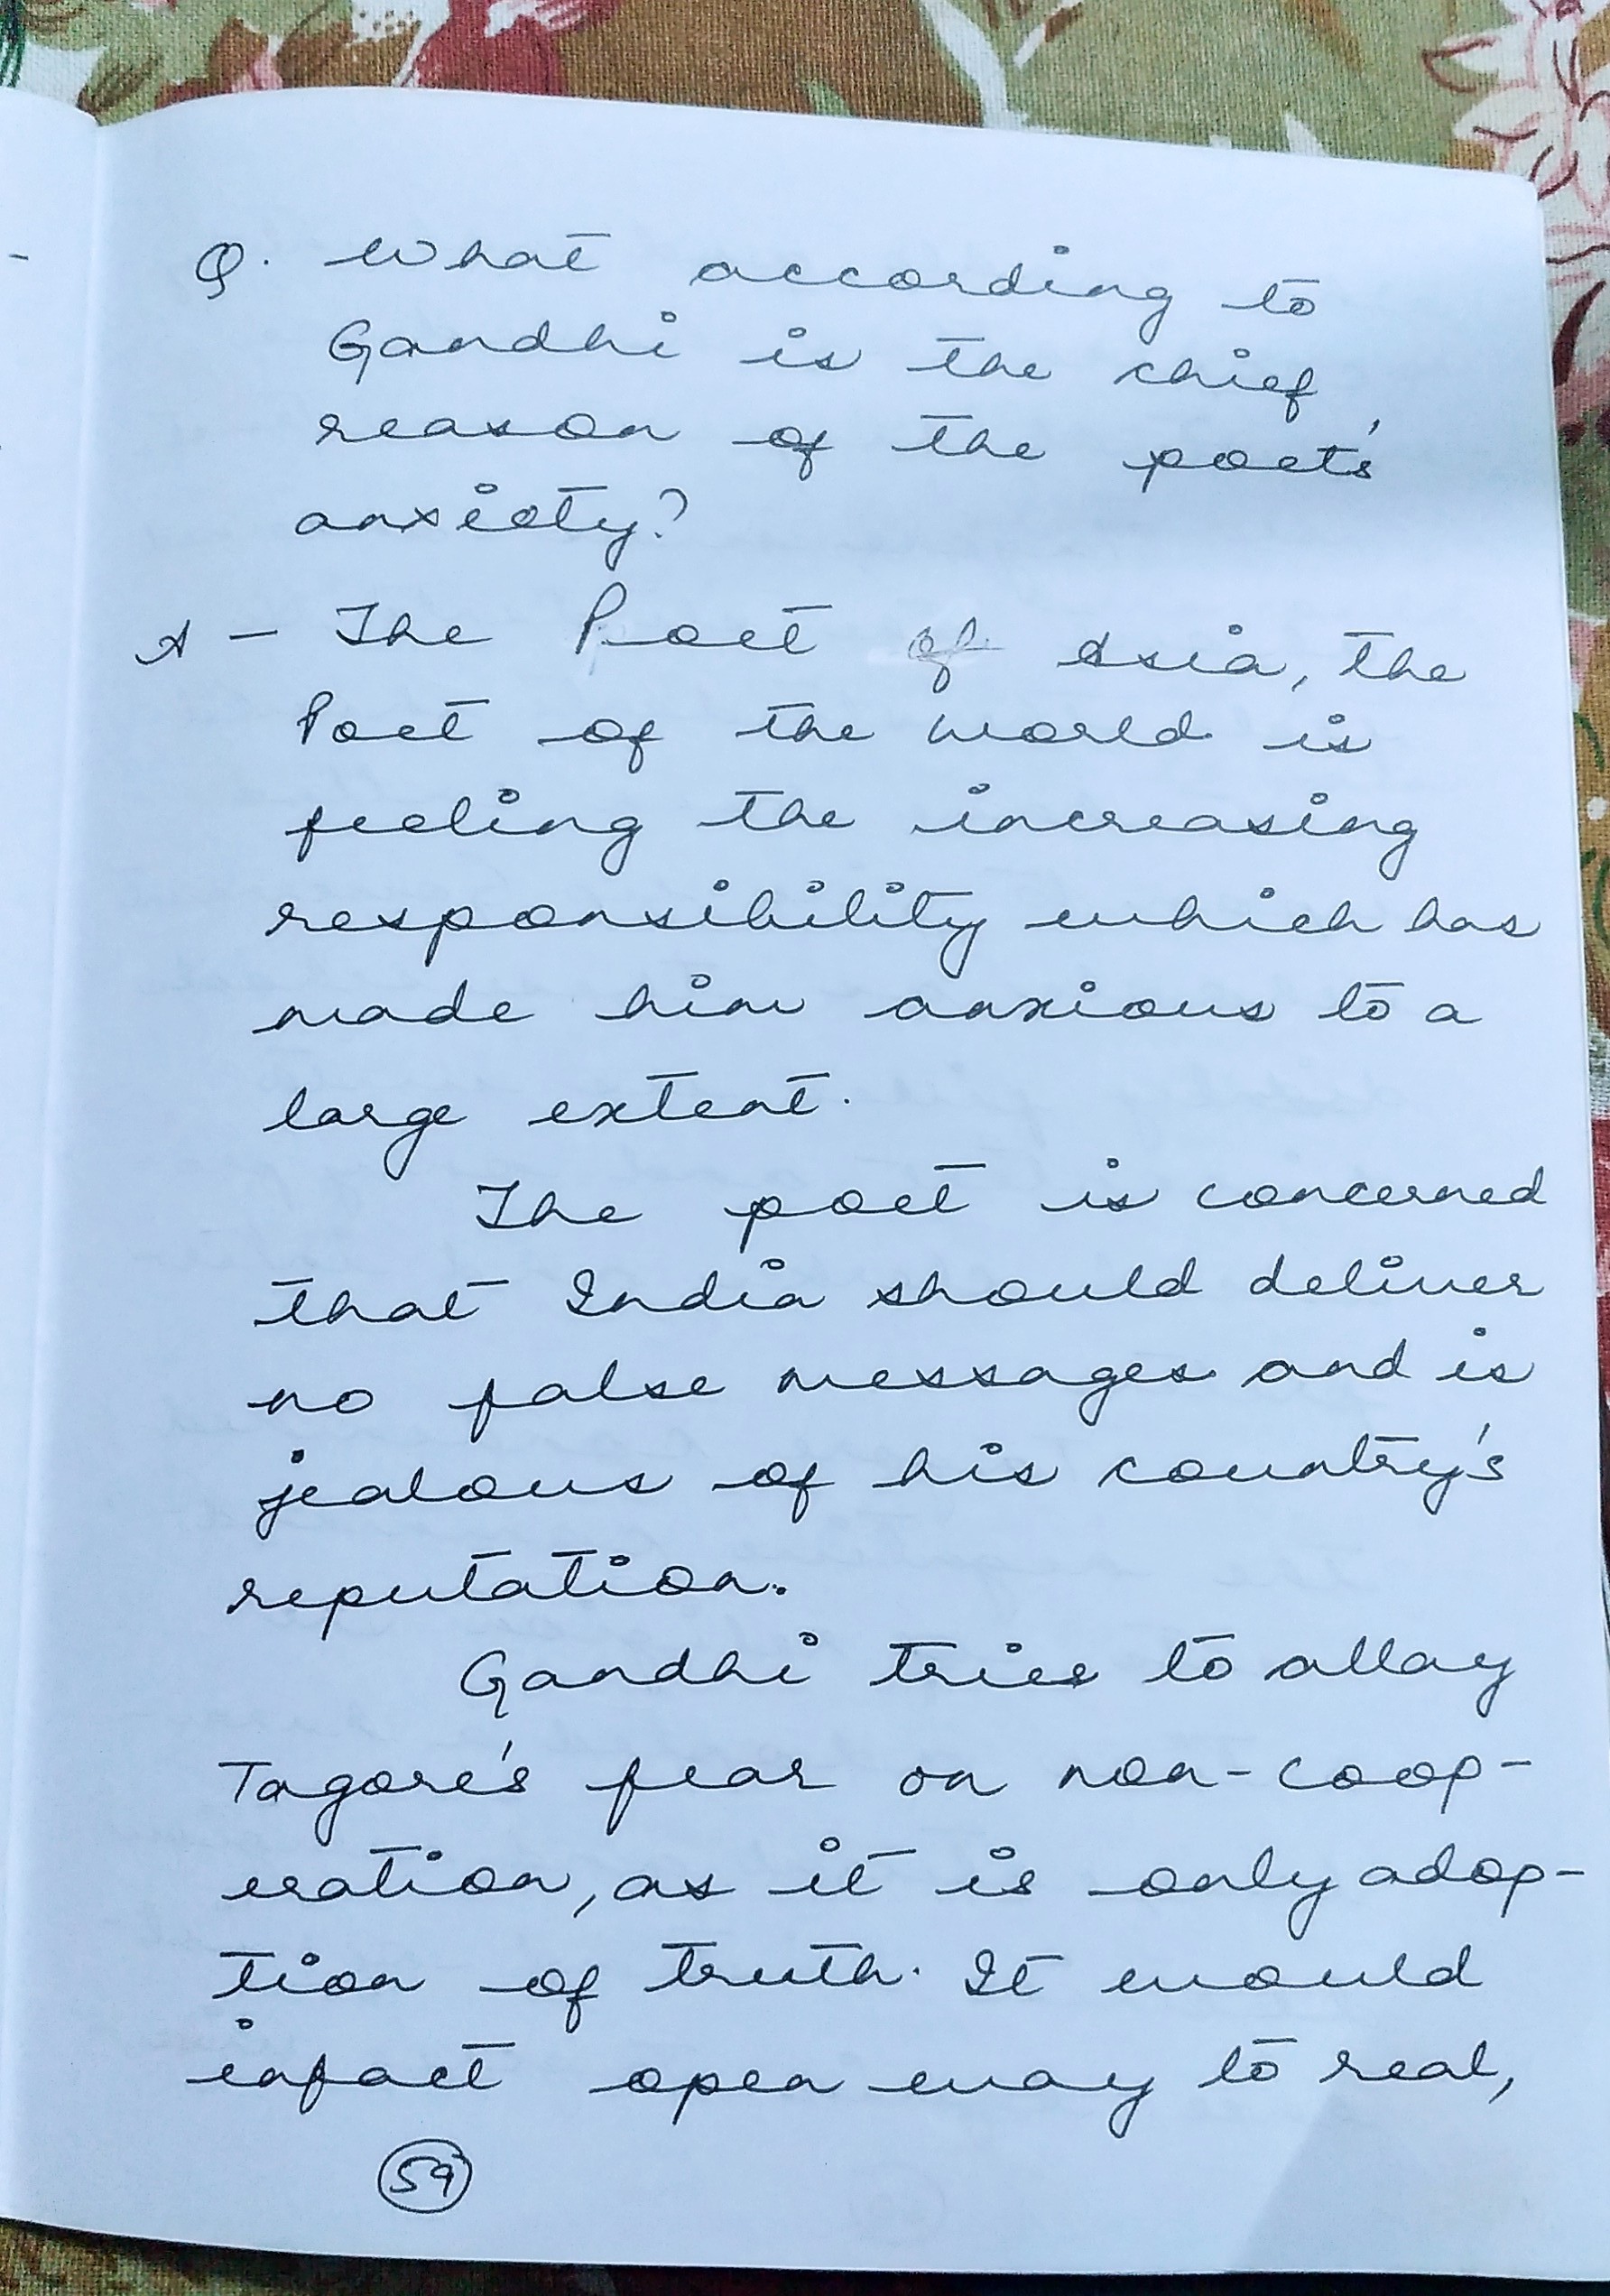 Q. What according to
Gandhi is the chief
reason of the poet's
anxiety?
A - The Poet of Asia, the
Poet of the world is
feeling the increasing
responsibility which has
made him anxious to a
large extent.
The poet is concerned
that India should deliver
no false messages and is
jealous of his country's
reputation.
Gandhi tries to allay
Tagore's fear on non-coop-
eration, as it is only adop-
tion of truth. It would
infact open way to real,
59